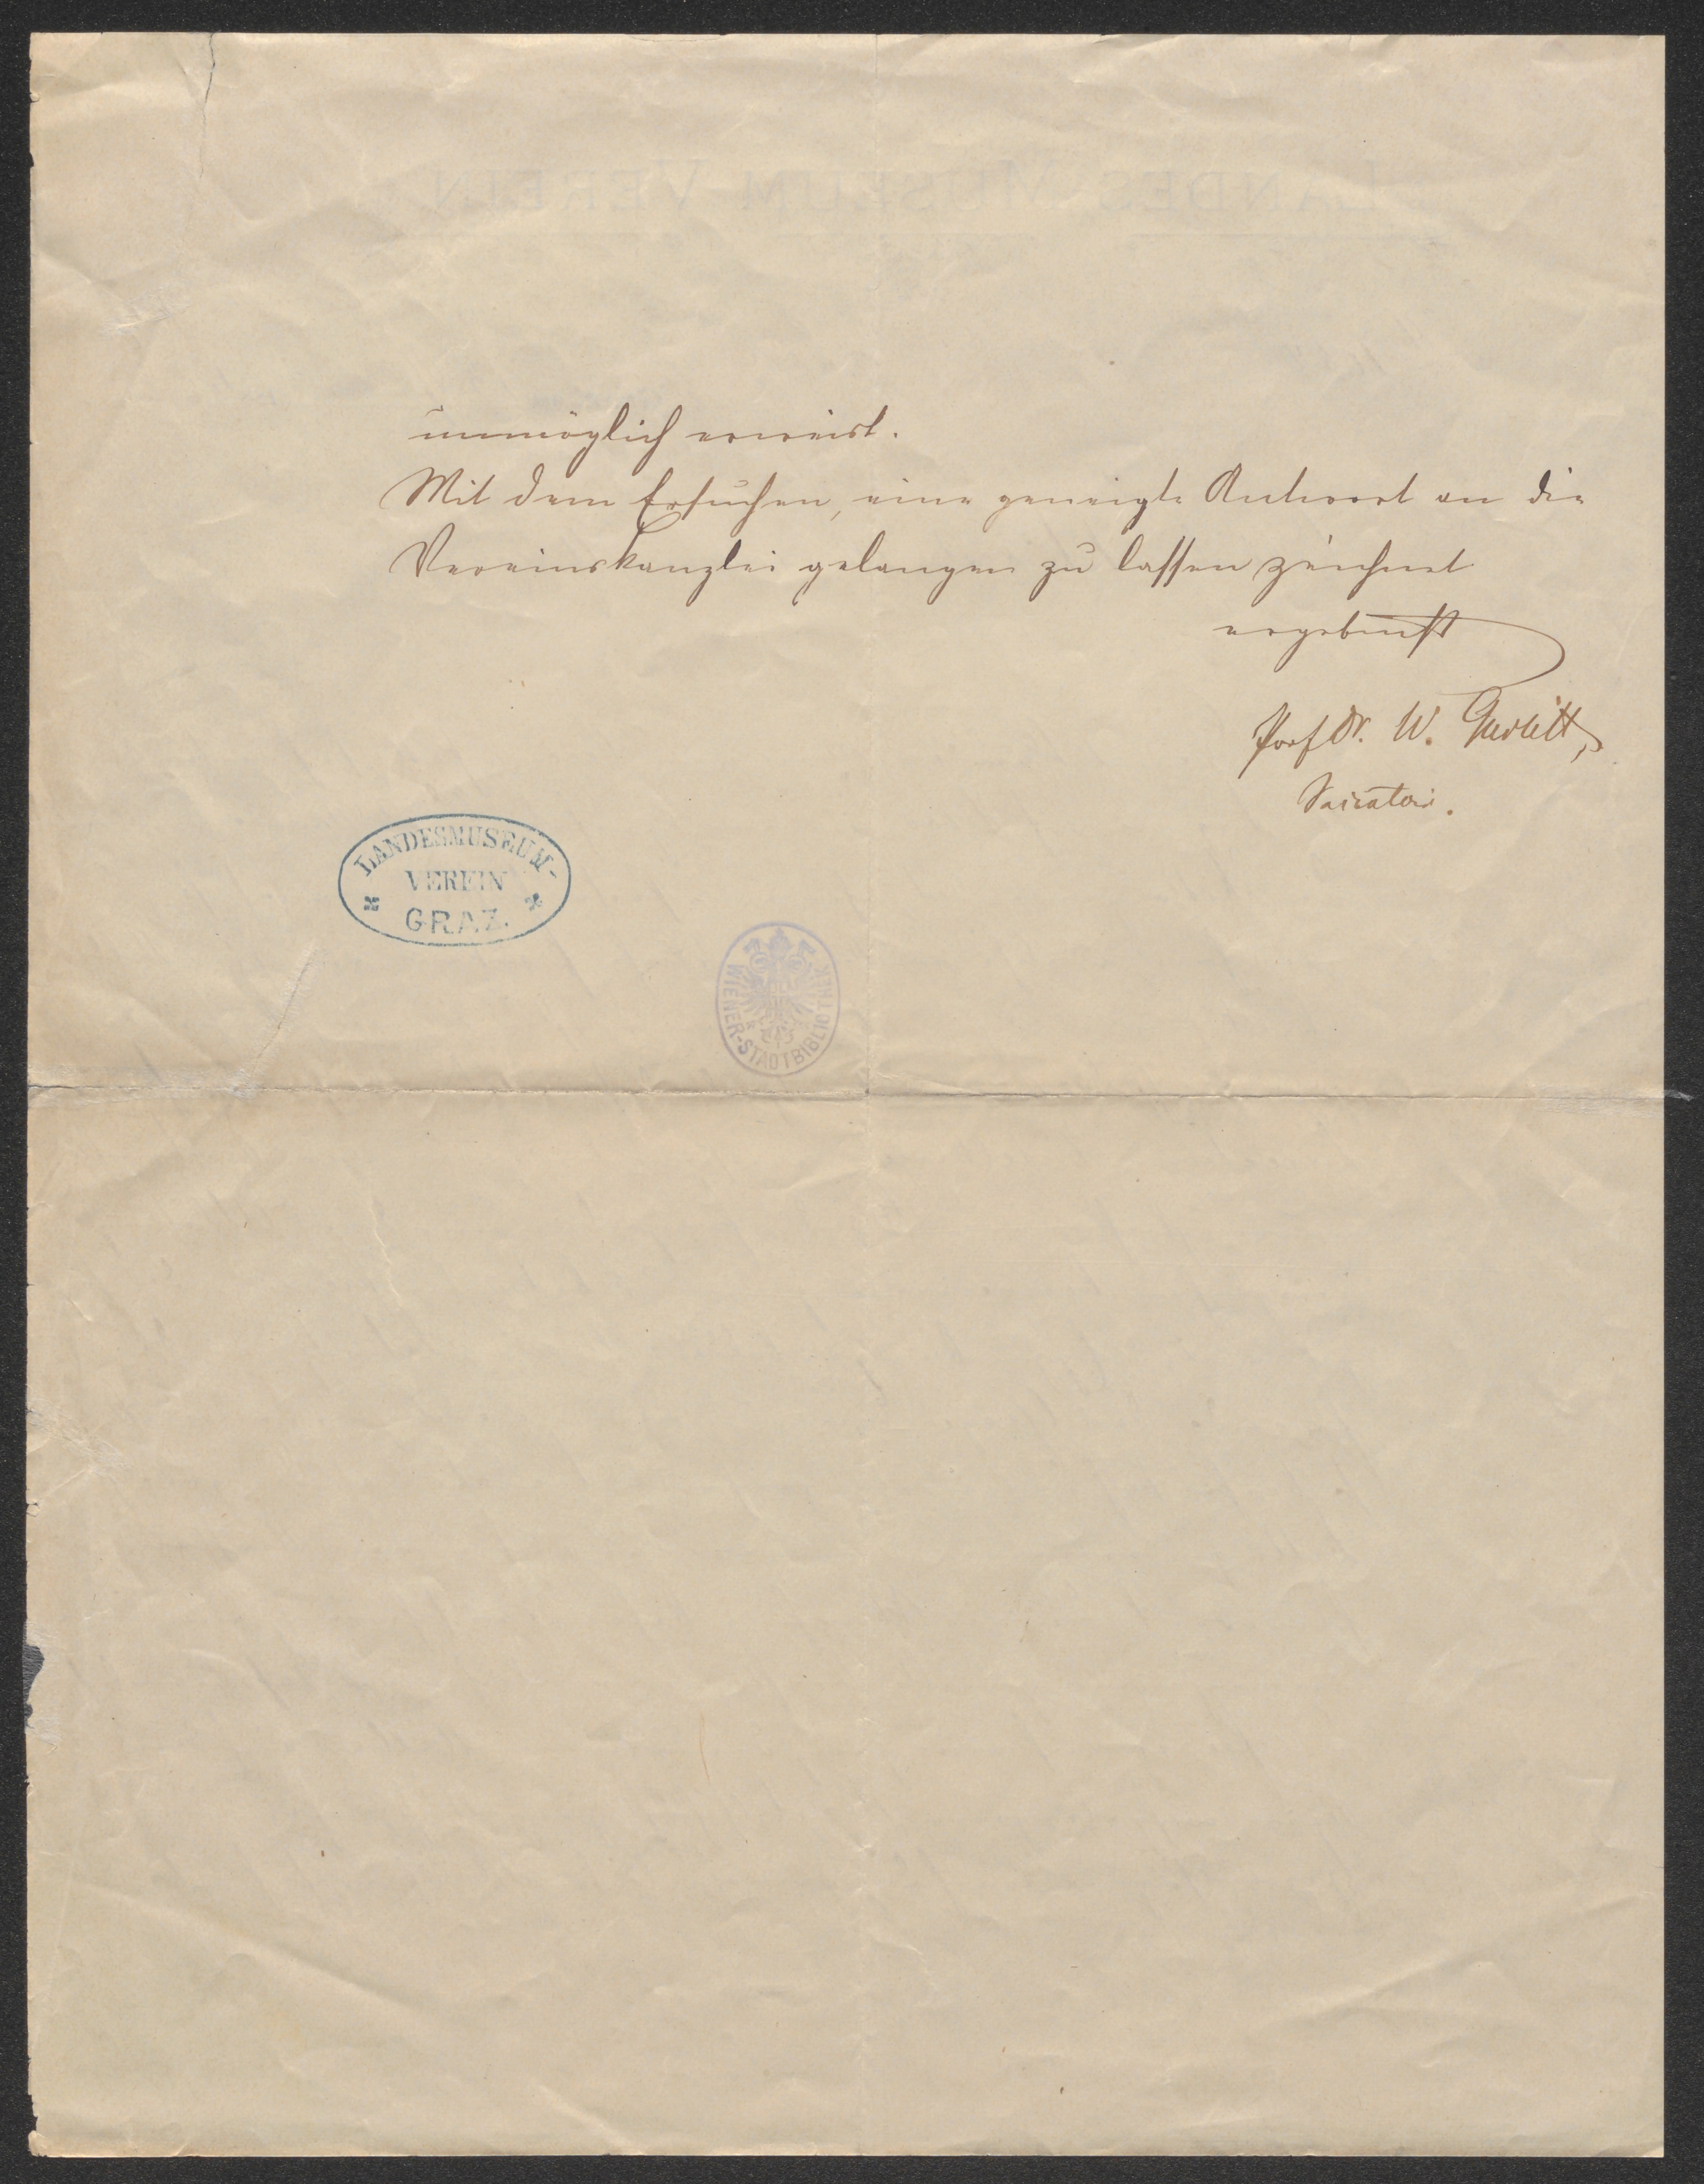 unmöglich erweist.
Mit dem Ersuchen, eine geneigte Antwort an die
Vereinskanzlei gelangen zu lassen zeichnet
ergebenst
Prof Dr. W. Gurlitt,
LANDESMUSEUM-
VEREIN
GRAZ.
WIENER-STADTBIBLIOTHEK
LANDES-MUSEUM-VEREIN